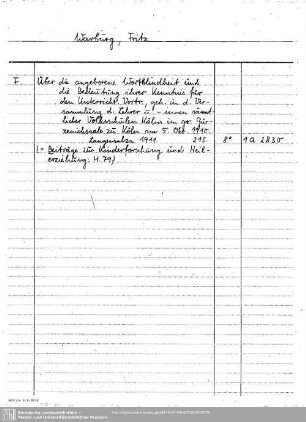 Warburg, Fritz
F. Über die angeborene Wortblindheit und
die Bedeutung ihrer Kenntnis für
den Unterricht. Vortr., geh. in d. Ver-
sammlung d. Lehrer u. - innen sämt-
licher Volksschulen Kölns im gr. Gür-
zenichsaale zu Köln am 5. Okt. 1910.
Langensalza 1911. 21 S. 8° 1 A 2830
(= Beiträge zur Kinderforschung und Heil-
erziehung: H. 79)
Sächsische Landesbibliothek -
Staats- und Universitätsbibliothek Dresden